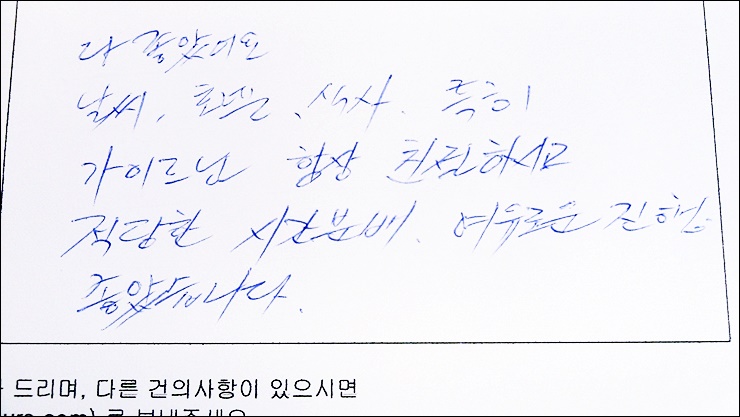 다 좋았어요
날씨, 호텔, 식사, 특히
가이드님 항상 친절하시고
적당한 시간분배, 여유로운 진행
좋았습니다.
드리며, 다른 건의사항이 있으시면
urs.com) 로 보내주세요